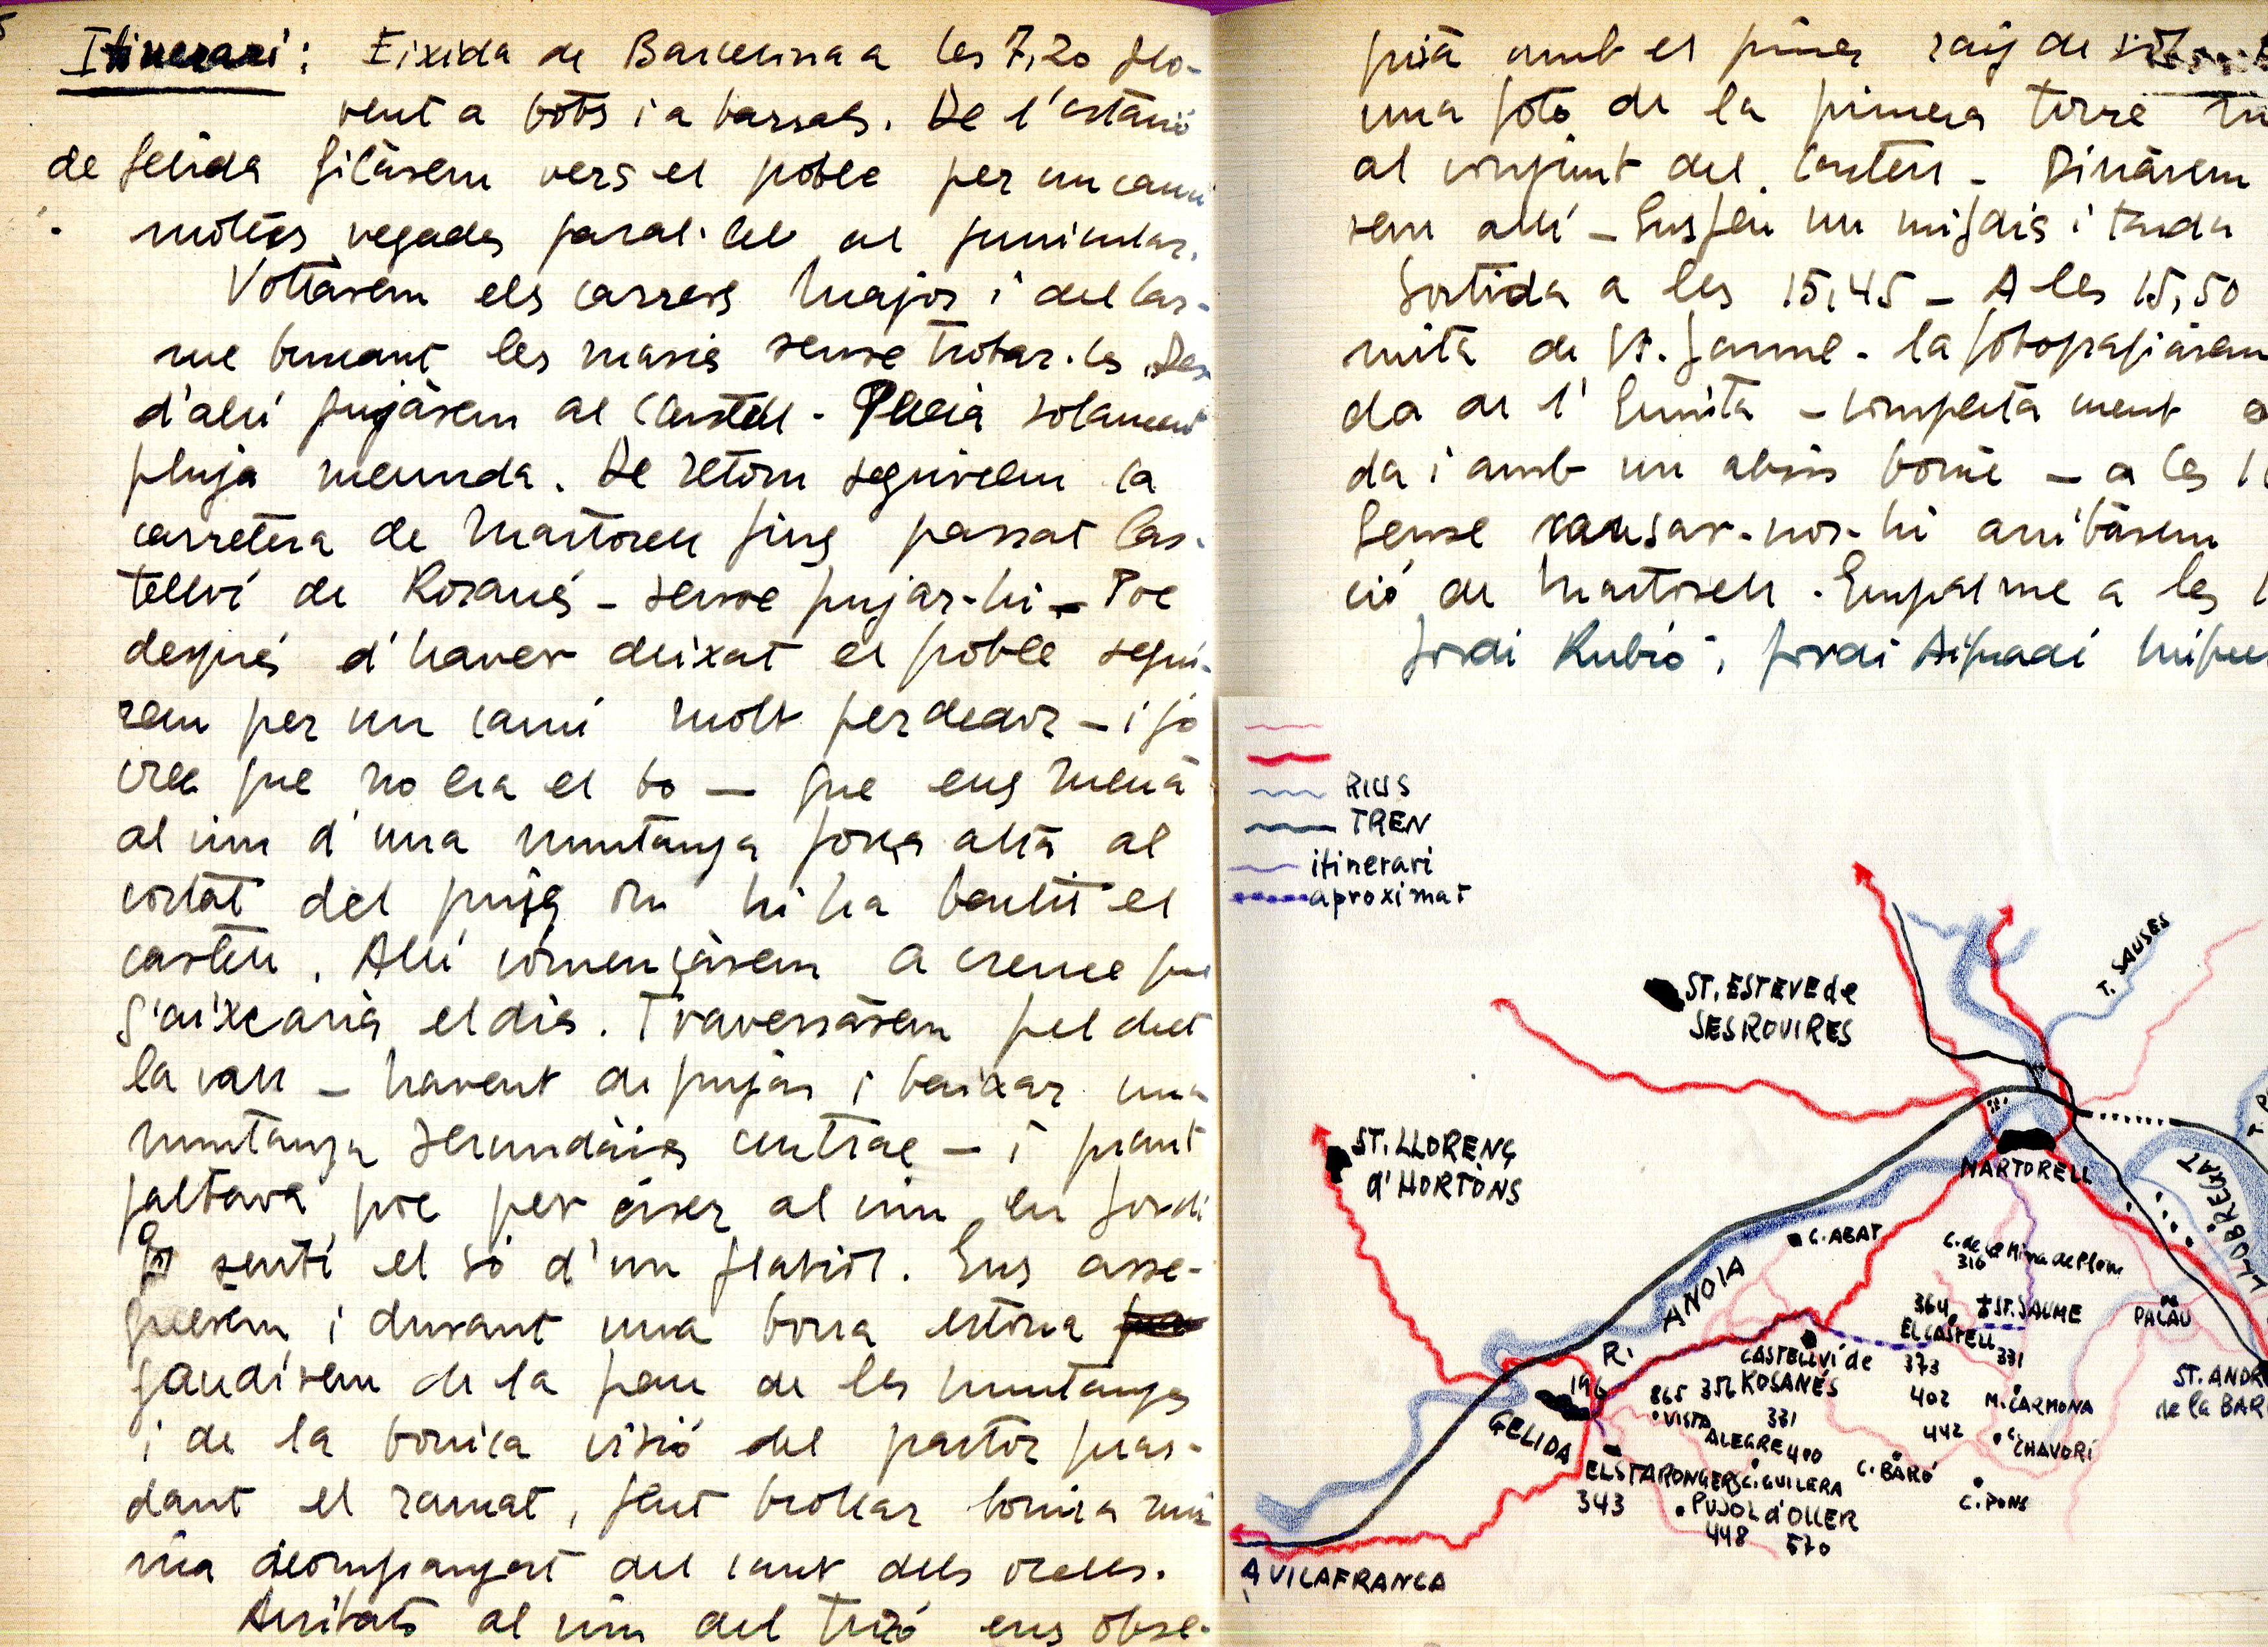 Itinerari: Eixida de Barcelona a les 7,20 plo-
vent a bots i a barrals. De l'estació
de Gelida filàrem vers el poble per un camí
moltes vegades paral·lel al funicular.
Voltàrem els carrers Major i del Car-
me buscant les masies sense trobar-les. Des
d'allí pujàrem al Castell - Plovia solament
pluja menuda. De retorn seguírem la
carretera de Martorell fins passat Cas-
tellví de Rosanés - sense pujar-hi - Poc
després d'haver deixat el poble segui-
rem per un camí molt perdedor - i jo
crec que no era el bo - que ens menà
al cim d'una muntanya força alta al
costat del puig on hi ha bastit el
castell. Allí començàrem a creure que
s'aixecaria el dia. Travessàrem pel dret
la vall - havent de pujar i baixar una
muntanya secundària central - i quant
faltava poc per ésser al cim en Jordi
sentí el só d'un flabiol. Ens asse-
guérem i durant una bona estona
gaudírem de la pau de les muntanyes
i de la bonica visió del pastor guar-
dant el ramat, fent brollar bonica
acompanyat del cant dels ocells.
Arribats al cim del turó ens obse-
quià amb el primer raig de sol
una foto de la primera torre
al conjunt del Castell - Dinàrem
rem allí - Ens feu un migdia i tarda
Sortida a les 15,45 - A les 15,50
mita de St. Jaume - la fotografiàrem
da de l'Ermita - completament
da i amb un absis bonic - a les
Sense cansar-nos-hi arribàrem
ció de Martorell - Empalme a les
Jordi Rubió, Jordi Miquel
RIUS
TREN
itinerari
aproximat
T. SAUSES
ST. ESTEVE de
SESROVIRES
ST. LLORENÇ
d'HORTÒNS
MARTORELL
LLOBREGAT
C. ABAT
C. de la Mina de Plom
316
R. ANOIA
364 ST. JAUME
EL CASTELL
331
373
PALAU
CASTELLVÍ de
ROSANÉS
196
865 356
VISTA
ALEGRE
331
400
402
442
M. CARMONA
C. CHAVORÍ
ST. ANDR
de la BAR
GELIDA
ELS TARONGERS
343
C. GUILERA
C. BARÓ
C. PONS
PUJOL d'OLLER
448 570
A VILAFRANCA